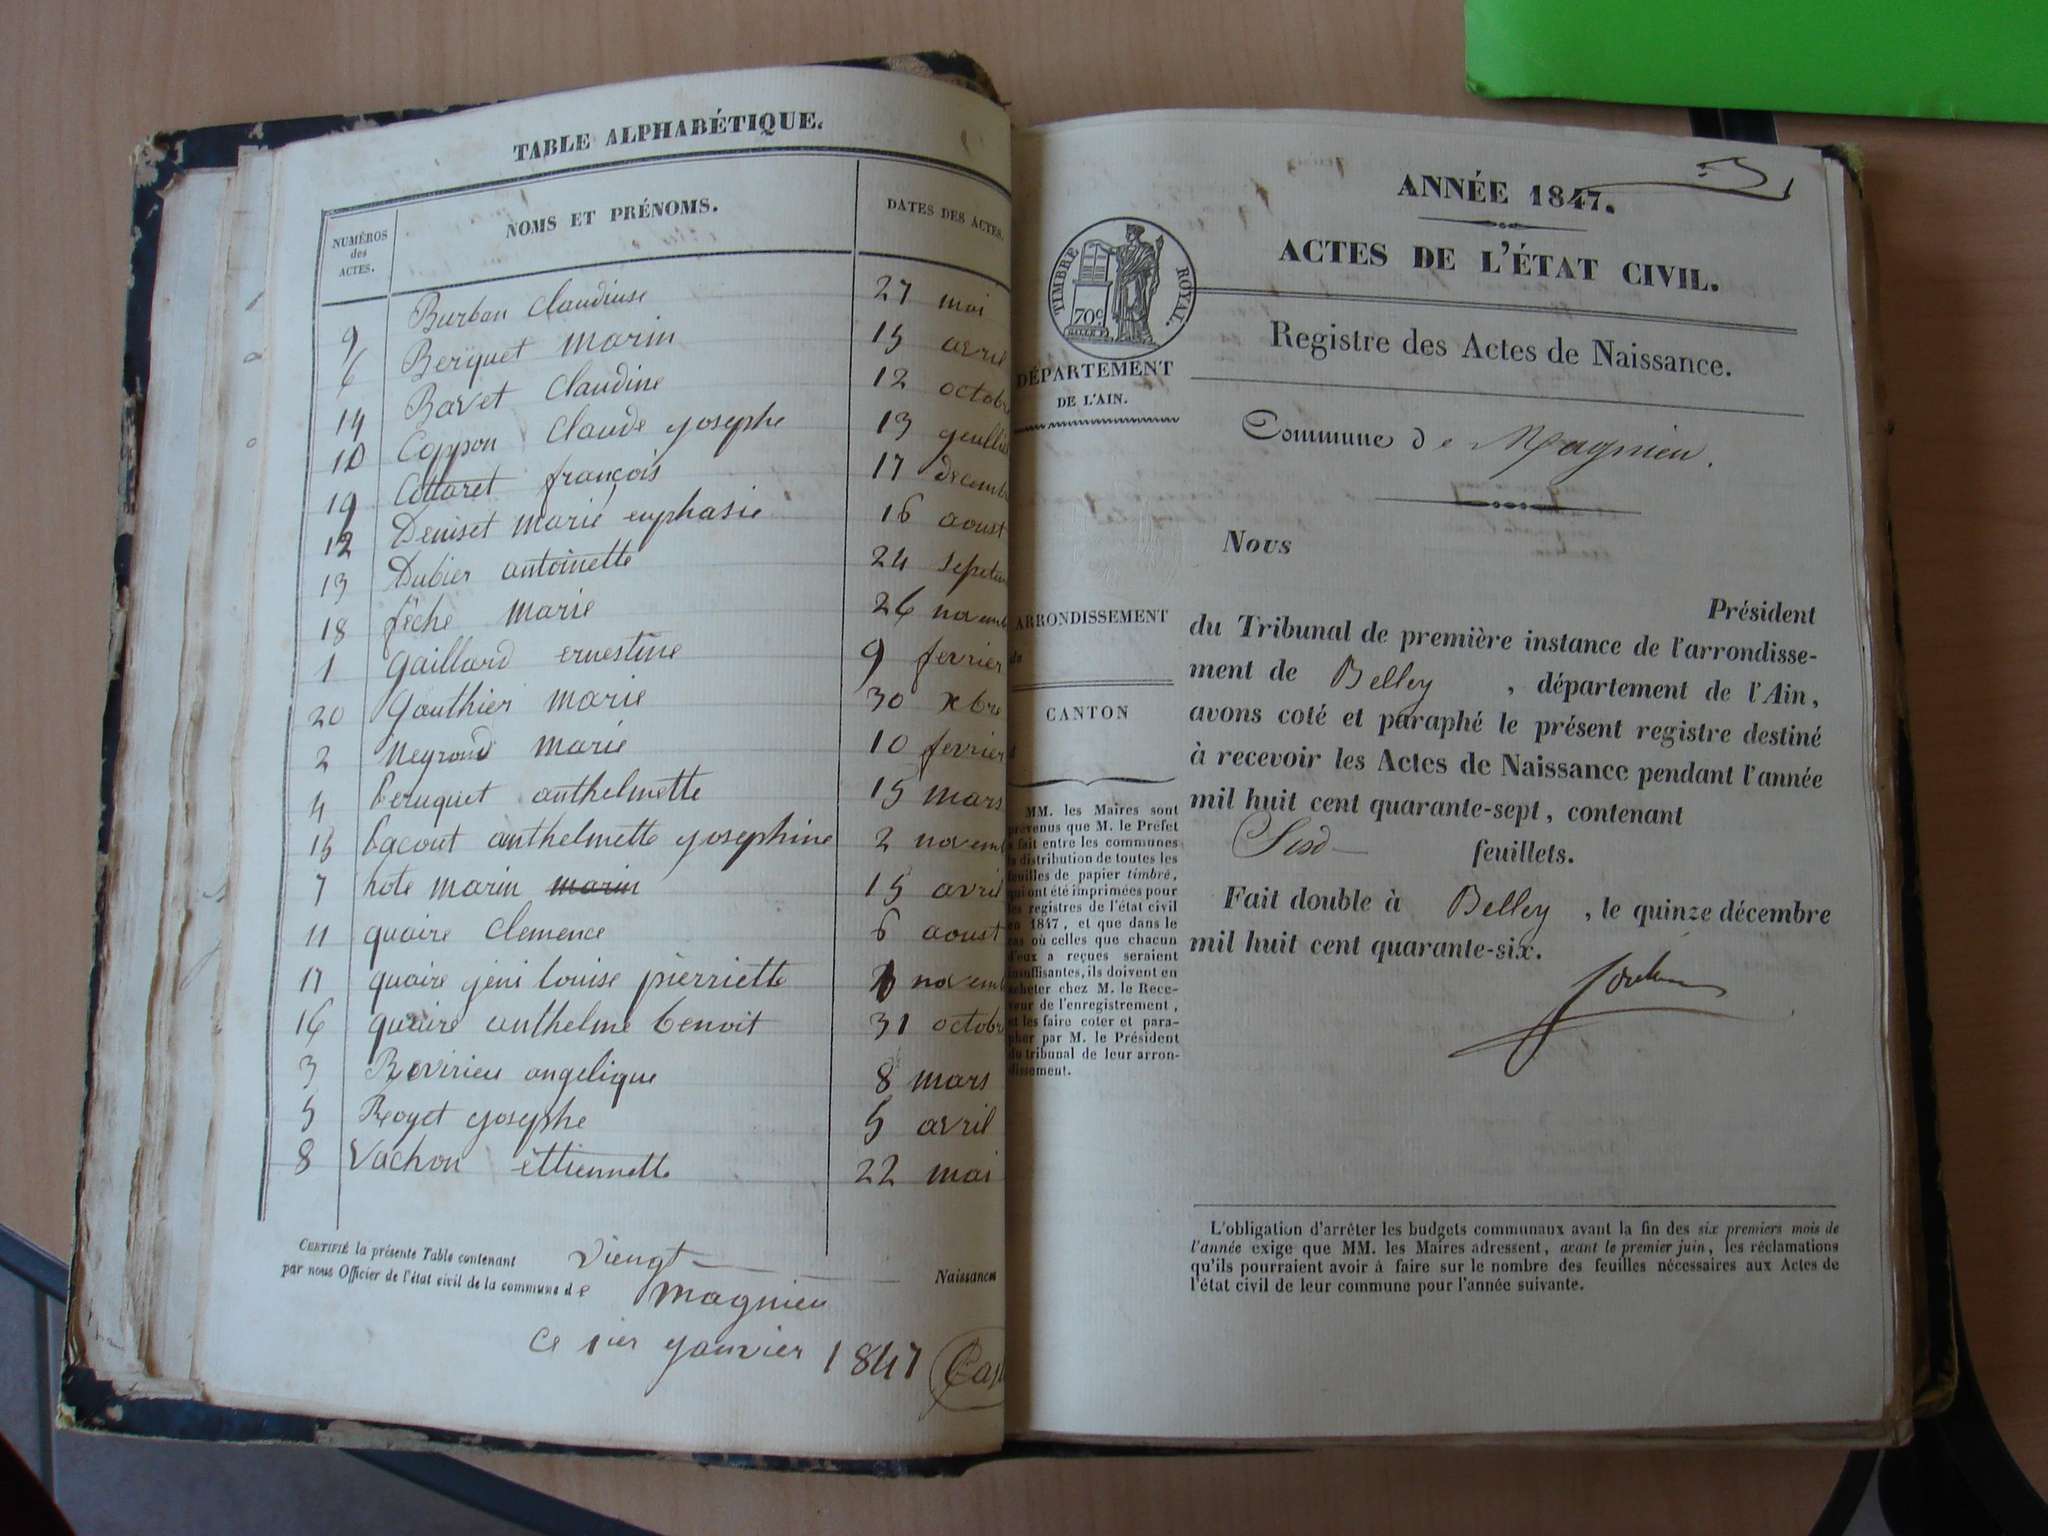 TABLE ALPHABÉTIQUE.
NUMÉROS des ACTES. NOMS ET PRÉNOMS. DATES DES ACTES.
9 Burban Claudine 27 mai
6 Berquet marin 15 avril
14 Bavet Claudine 12 octobre
10 Coppon Claude yosephe 13
19 Cottaret françois 17 decemb
12 Deniset marie euphasie 16 aoust
13 Dubier antoinette 24
18 fêche marie 26 novemb
1 gaillard ernestine 9 fevrier
20 gauthier marie 30 xbre
2 Neyroud marie 10 fevrier
4 beruquet anthelmette 15 mars
15 Lacout anthelmette yosephine 2 novemb
7 hote marin marin 15 avril
11 quaire Clemence 6 aoust
17 quaire jeni Louise pierriette novemb
16 quaire anthelme benoit 31 octobr
3 Rovirieu angelique 8 mars
5 Royet yosephe 5 avril
8 Vachon ettiennette 22 mai
CERTIFIÉ la présente Table contenant viengt Naissances
par nous Officier de l'état civil de la commune de magnieu
ce 1ier yanvier 1847
ANNÉE 1847.
ACTES DE L'ÉTAT CIVIL.
TIMBRE ROYAL.
70c
Registre des Actes de Naissance.
DÉPARTEMENT
DE L'AIN.
Commune de Magnieu.
Nous
Président
ARRONDISSEMENT
de
CANTON
du Tribunal de première instance de l'arrondisse-
ment de Belley, département de l'Ain,
avons coté et paraphé le présent registre destiné
à recevoir les Actes de Naissance pendant l'année
mil huit cent quarante-sept, contenant
feuillets.
Fait double à Belley, le quinze décembre
mil huit cent quarante-six.
MM. les Maires sont
prévenus que M. le Préfet
a fait entre les communes
la distribution de toutes les
feuilles de papier timbré,
qui ont été imprimées pour
les registres de l'état civil
en 1847, et que dans le
cas où celles que chacun
d'eux a reçues seraient
insuffisantes, ils doivent en
acheter chez M. le Rece-
veur de l'enregistrement,
et les faire coter et para-
pher par M. le Président
du tribunal de leur arron-
dissement.
L'obligation d'arrêter les budgets communaux avant la fin des six premiers mois de
l'année exige que MM. les Maires adressent, avant le premier juin, les réclamations
qu'ils pourraient avoir à faire sur le nombre des feuilles nécessaires aux Actes de
l'état civil de leur commune pour l'année suivante.